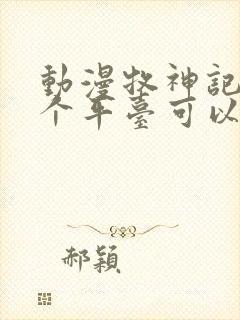 動漫牧神記
个平臺可以
郝穎